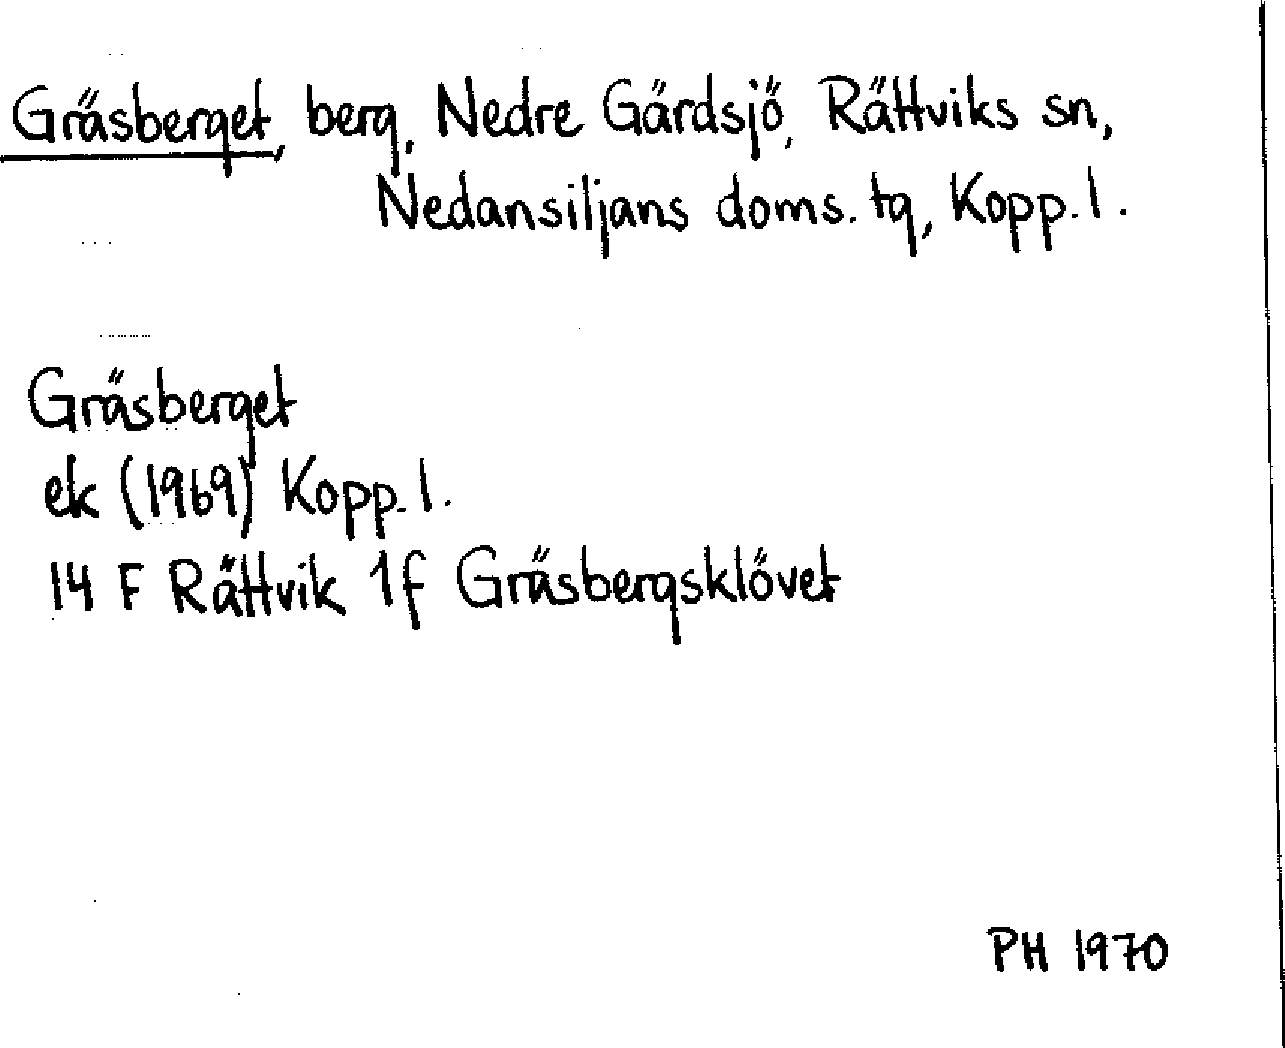 Gräsberget, berg, Nedre Gärdsjö, Rättviks sn,
Nedansiljans doms. tg, Kopp. l.
Gräsberget
ek (1969) Kopp. l.
14 F Rättvik 1f Gräsbergsklövet
PH 1970